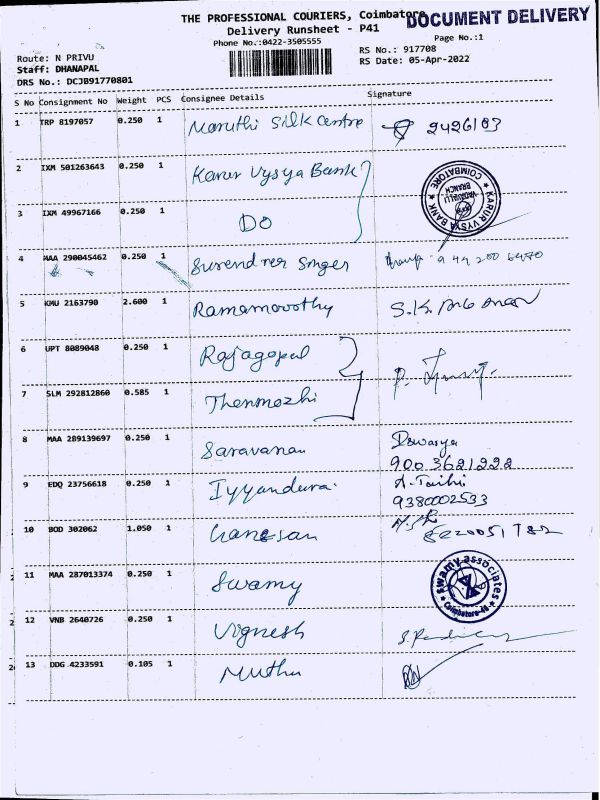 THE PROFESSIONAL COURIERS, Coimbatore
DOCUMENT DELIVERY
Delivery Runsheet - P41
Page No.:1
Phone No.:0422-3505555
RS No.: 917708
RS Date: 05-Apr-2022
Route: N PRIVU
Staff: DHANAPAL
DRS No.: DCJB91770801
S No Consignment No Weight PCS Consignee Details Signature
1 TRP 8197057 0.250 1 Maruthi Silk Centre 2426183
2 IXM 501263643 0.250 1 Karur Vysya Bank
KARUR VYSYA BANK COIMBATORE VADAVALLI BRANCH
3 IXM 49967166 0.250 1 DO
4 MAA 290045462 0.250 1 Surendrer Singer
5 KMU 2163790 2.600 1 Ramamoorthy S.K.
6 UPT 8089048 0.250 1 Rajagopal
7 SLM 292812860 0.585 1 Thenmozhi
8 MAA 289139697 0.250 1 Saravanan
9003621222
9 EDQ 23756618 0.250 1 Iyyandurai
9380002533
10 BOD 302062 1.050 1 Ganesan
11 MAA 287013374 0.250 1 Swamy
swamy associates Coimbatore
12 VNB 2640726 0.250 1 Vignesh
13 DDG 4233591 0.105 1 Muthu